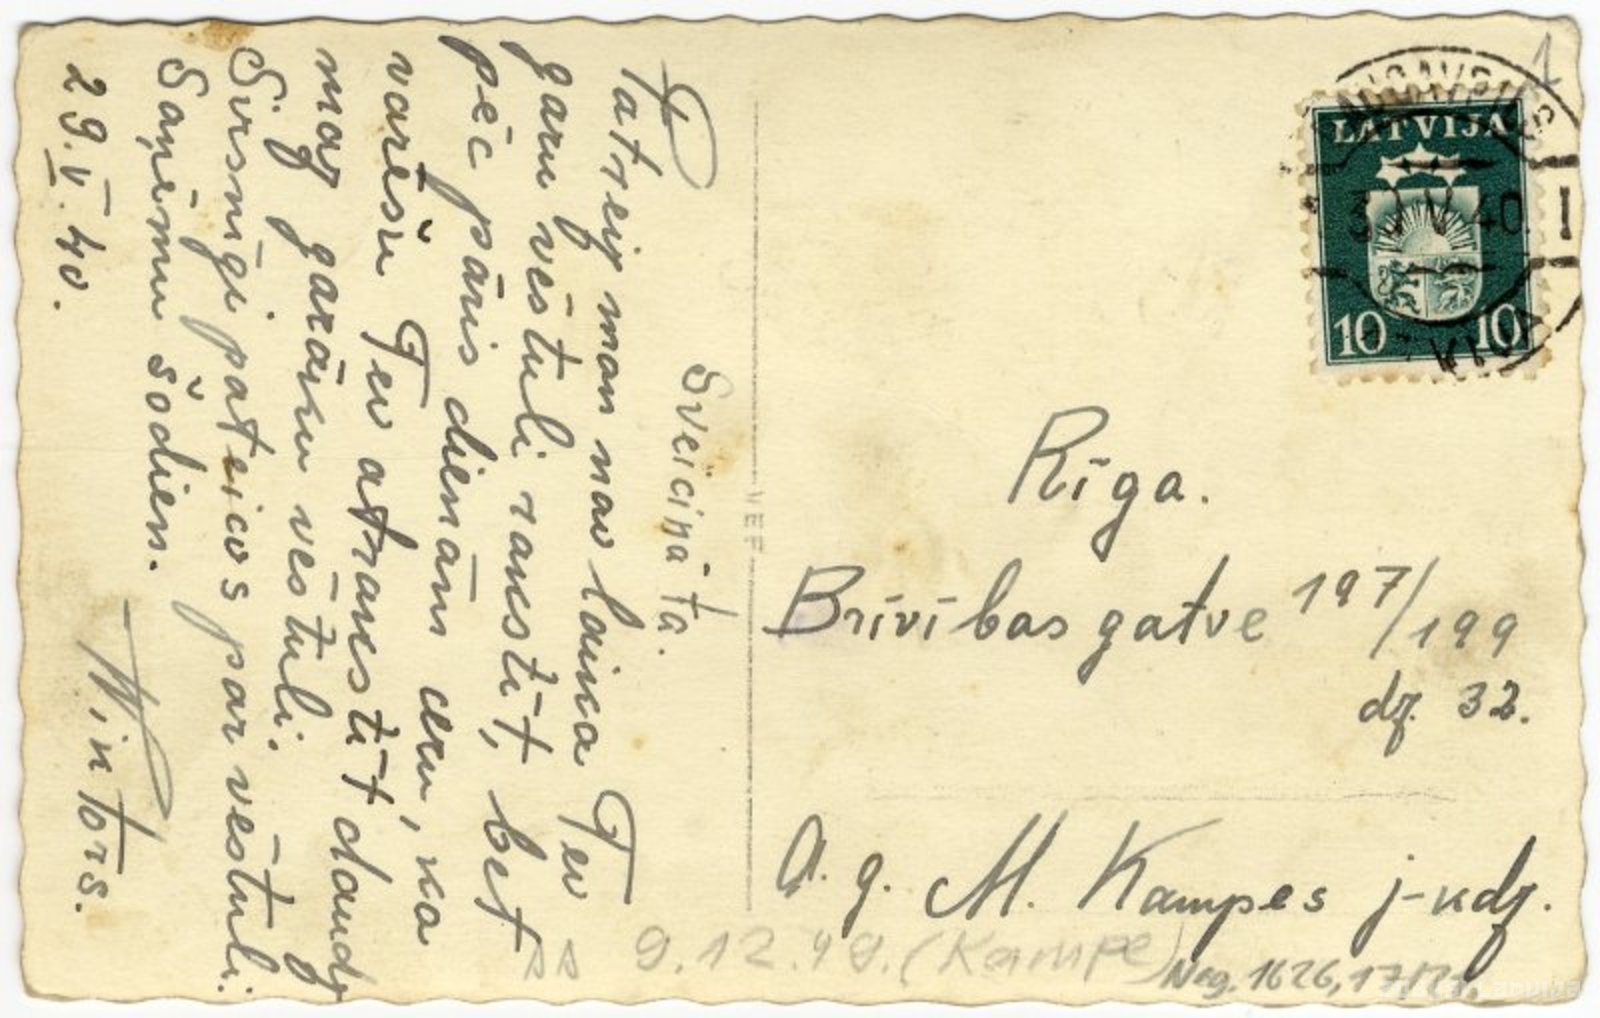 Sveicināta.
Patreiz man nav laika Tev
garu vēstuli rakstīt, bet
pēc pāris dienām ceru, ka
varēšu Tev atrakstīt daudz
maz garāku vēstuli.
Sirsnīgi pateicos par vēstuli.
Saņēmu šodien.
29.V.40.
Wiktors.
VEF
LATVIJA
10 10
V 40
I
Rīga.
Brīvības gatve 197/199
dz. 32.
A. g. M. Kampes j-kdz.
9.12.49. (Kampe)
Neg. 1626,